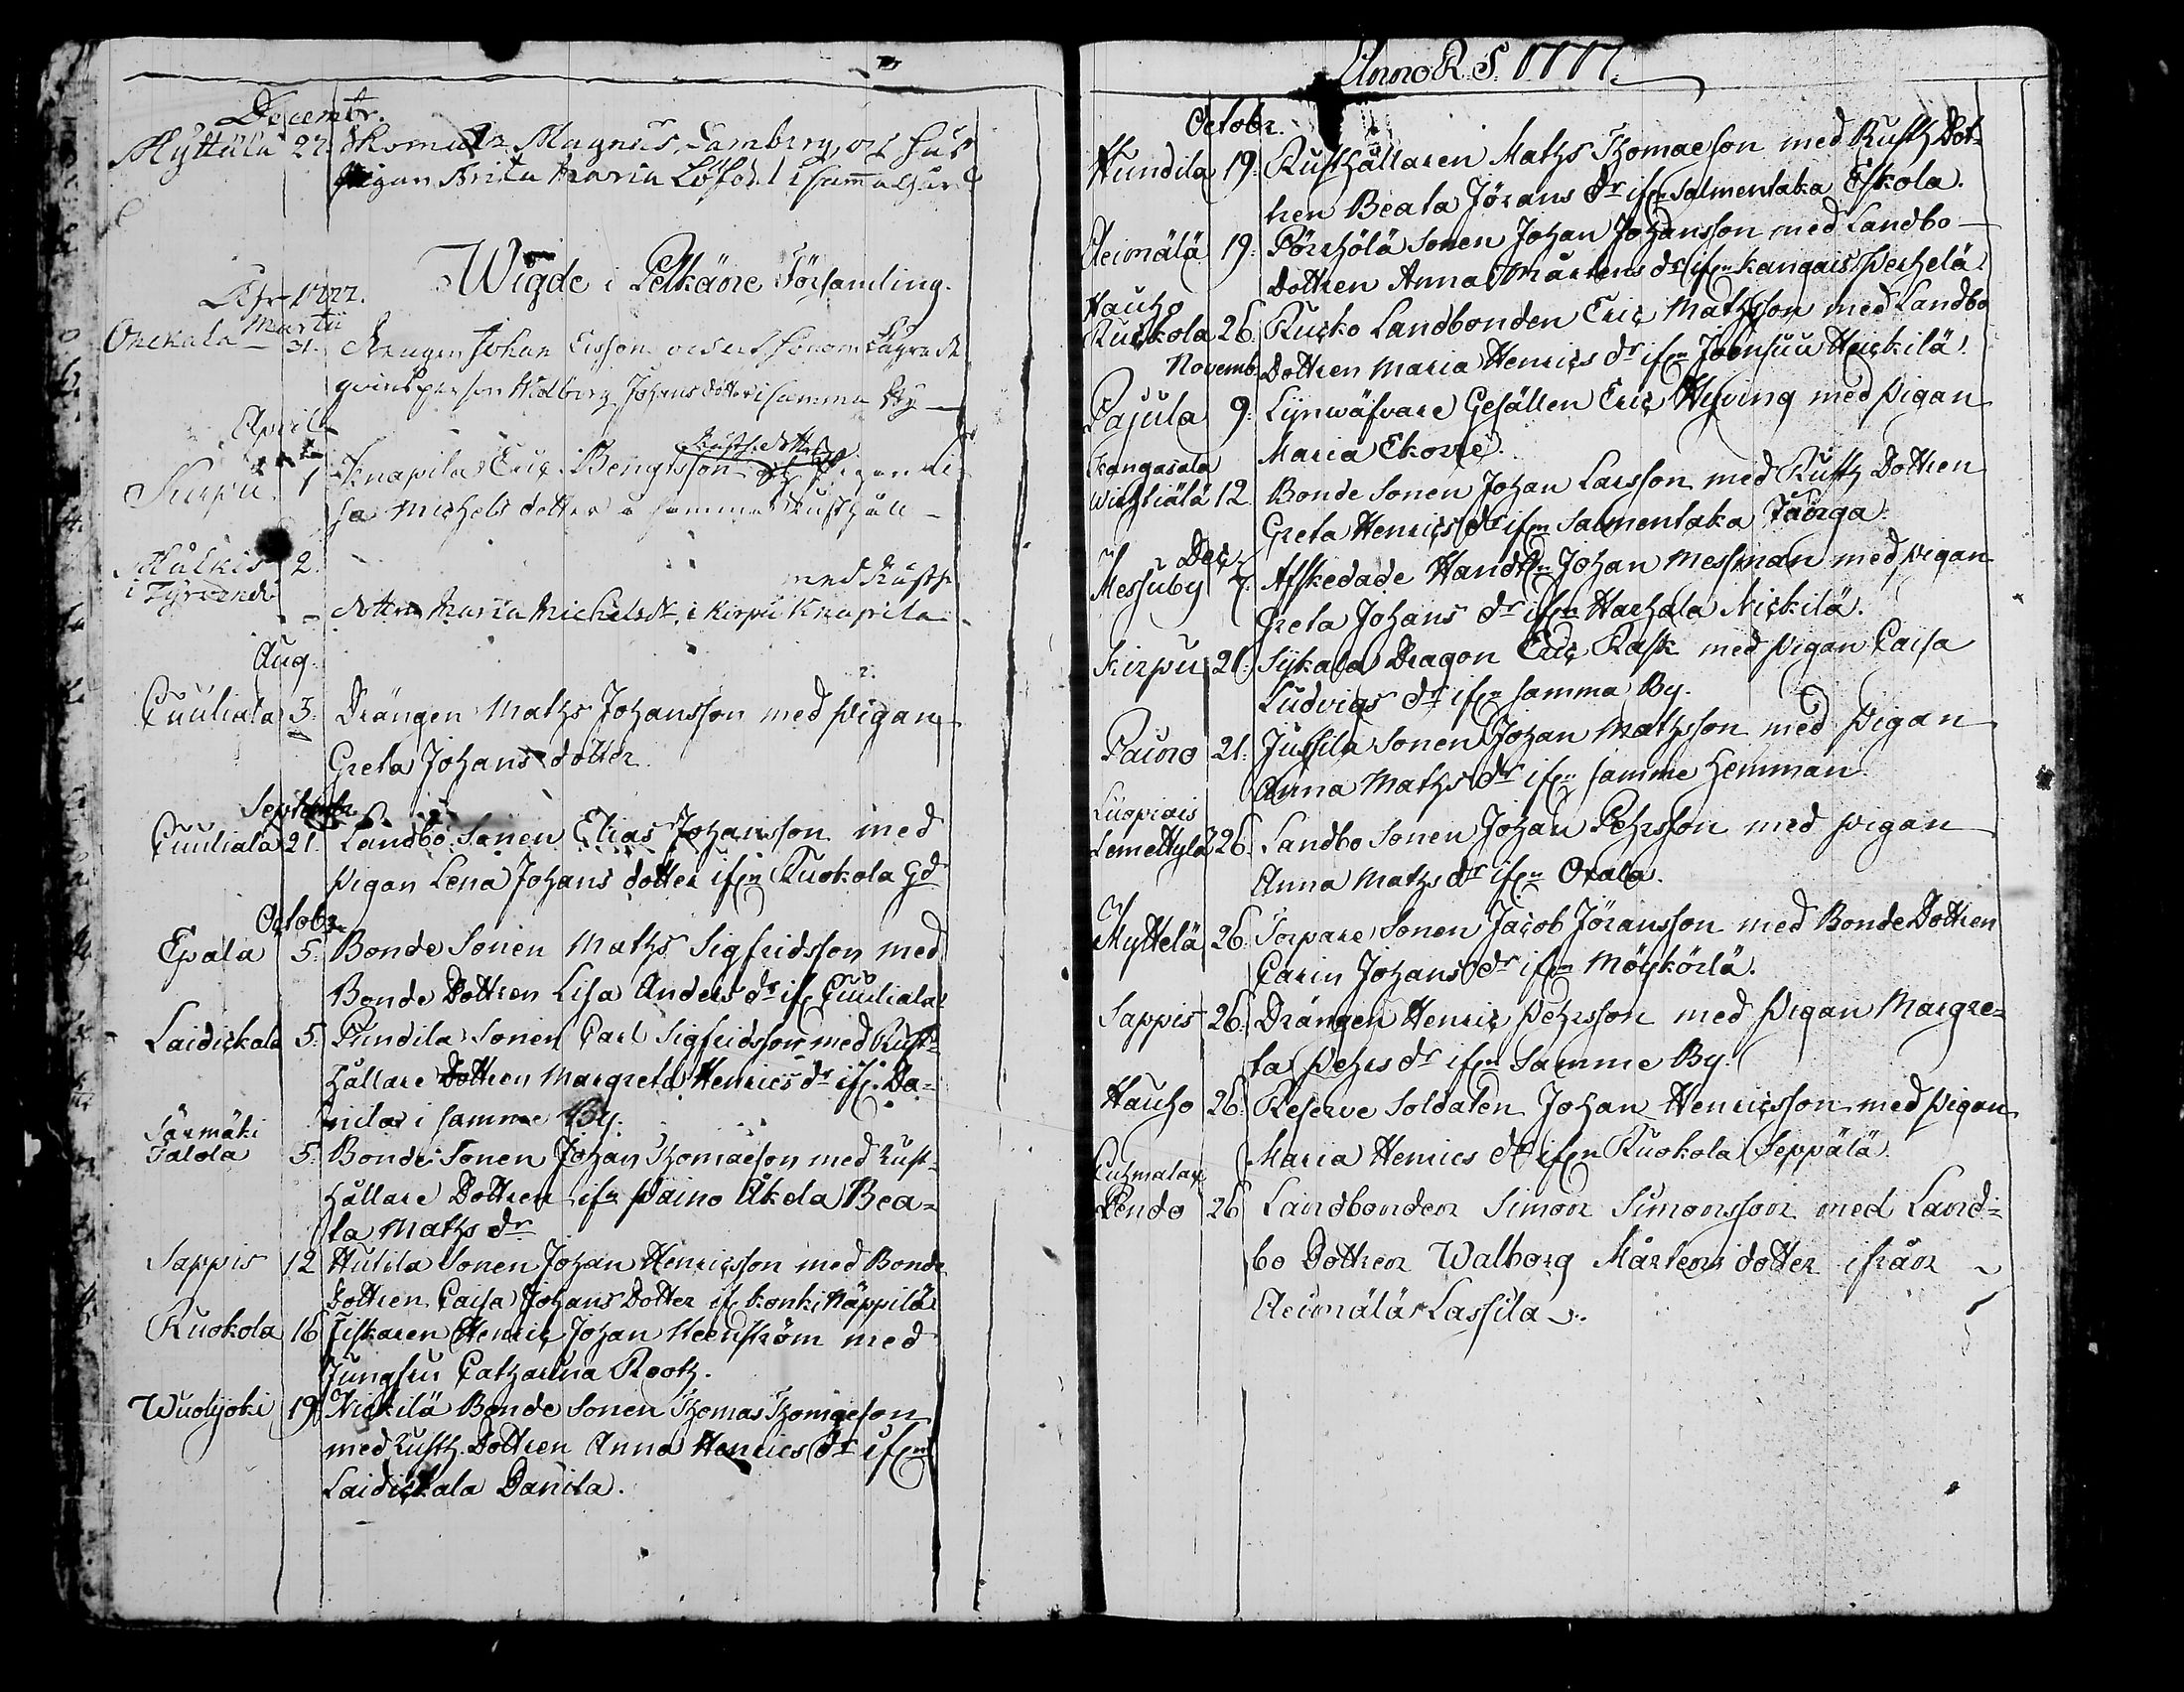 Decembr.
Myttälä 27. Magnus Lamberg, och hus
pigan Brita Maria Löfed i samma gård
Wigde i Pelkäne Församling.
Åhr 1777.
Martii
Onckala 31. Drängen Johan
qvinsperson Walborg Johans dotter i samma By
Aprill
Rusth. dottr
Kirpu 1 Knapila Eric Bengtsson
sa Michels dotter i samma Rusthåll
2.
i Tyrvändö med Rusth.
dottren Maria Michels dr. i Kirpu Knapila
Aug.
Cuuliala 3. Drängen Mathz Johansson med pigan
Greta Johans dotter.
Septembr.
Cuuliala 21. Landbo Sonen Elias Johansson med
pigan Lena Johans dotter ifrn Kuokola gd
Octobr.
Epala 5. Bonde Sonen Mathz Sigfridsson med
Bonde Dottren Lisa Anders dr if. Cuuliala
Laidickala 5. Pundila Sonen Carl Sigfridsson med Rust-
hållare Dottren Margreta Henrics dr if. Da-
nila i samme By.
Särmäki
Talola 5. Bonde Sonen Johan Thomaeson med Rust-
hållare Dottren ifn Paino Äkela Bea-
ta Mathz dr
Sappis 12 Hulila Sonen Johan Henricsson med Bonde
Dottren Caisa Johans Dotter if. Konki Näppilä
Kuokola 16 Fiskaren Henric Johan Heenström med
Jungfru Catharina Rooth.
Wuolijoki 19. Nickilä Bonde Sonen Thomas Thomaeson
med Rusth. Dottren Anna Henrics dr ifrn
Laidickala Danila.
Anno R. S. 1777.
Octobr.
Hundila 19. Rusthållaren Mathz Thomaeson med Rusth Dot-
tren Beata Jörans dr ifrn Salmentaka Eskola.
Aeimälä 19. Pörrhölä Sonen Johan Johansson med Landbo
Dottren Anna Mårtens dr ifrn Kangais Perhelä.
Hauho
Kuckola 26. Kucko Landbonden Eric Mathzson med Landbo
Novemb. Dottren Maria Henrics dr ifn Joensuu Heickilä.
Pajula 9. Lynwäfvare Gesällen Eric Hyving med pigan
Maria Ekorre.
Kangasala
Wichtiälä 12. Bonde Sonen Johan Larsson med Rusth Dottren
Greta Henrics dr ifrn Salmentaka Taorga.
Dec.
Messuby 7. Afskedade Johan Messman med pigan
Greta Johans dr ifrn Harhala Nickilä.
Kirpu 21. Sykala Dragon Eric Rask med pigan Caisa
Ludvigs dr ifrn samma By.
Paino 21. Jussila Sonen Johan Mathzson med Pigan
Anna Mathz dr ifrn samme Hemman.
Luopiais
Lemettylä 26. Landbo Sonen Johan Pehrsson med pigan
Anna Mathz dr ifrn Orala.
Myttelä 26. Torpare Sonen Jacob Jöransson med Bonde Dottren
Carin Johans dr ifrn Möykörlä.
Sappis 26. Drängen Henric Pehrsson med Pigan Margre-
ta Pehrs dr ifrn Samme By.
Hauho 26. Reserve Soldaten Johan Henricsson med pigan
Maria Henrics dr ifrn Kuokola Seppälä.
Cuhmalax
Pendo 26 Landbonden Simon Simonsson med Land-
bo Dottren Walborg Mårtens dotter ifrån
Aeimälä Lassila